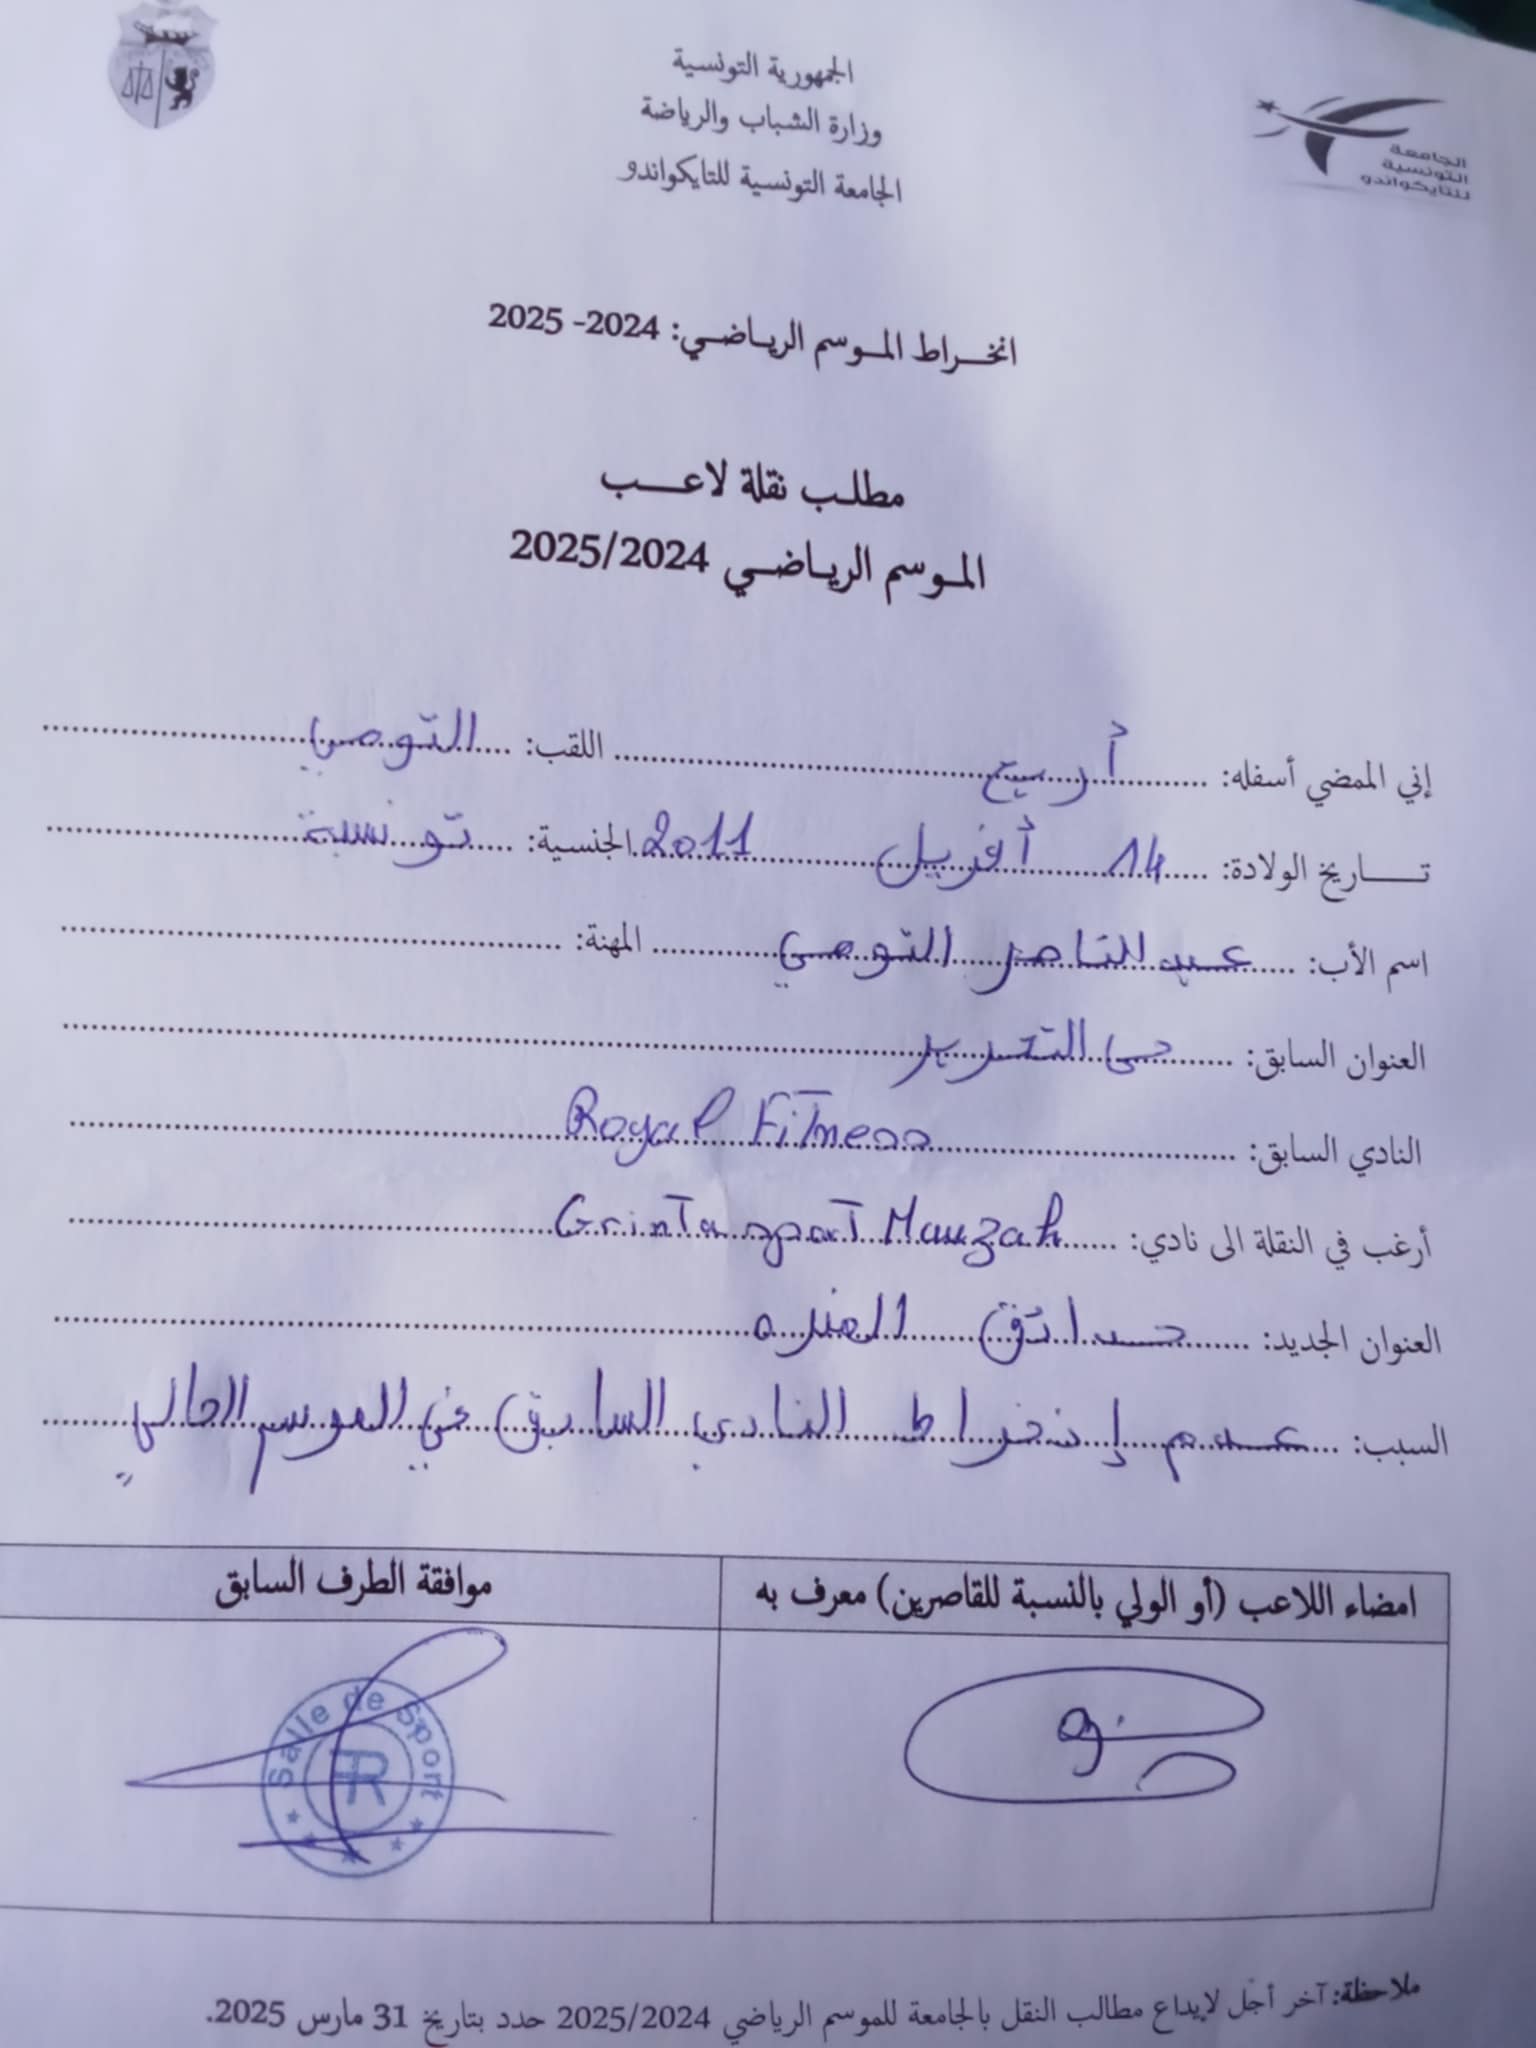 الجمهورية التونسية
وزارة الشباب والرياضة
الجامعة التونسية للتايكواندو
الجامعة
التونسية
للتايكواندو
انخراط الموسم الرياضي: 2024- 2025
مطلب نقلة لاعب
الموسم الرياضي 2025/2024
إني الممضي أسفله: أريج اللقب: التومي
تاريخ الولادة: 14 أفريل 2011 الجنسية: تونسية
اسم الأب: عبد الناصر التومي المهنة:
العنوان السابق: حي التحرير
النادي السابق: Royal Fitness
أرغب في النقلة الى نادي: Grinta sport Manzah
العنوان الجديد: حدائق المنزه
السبب: عدم إنخراط النادي السابق في الموسم الحالي
امضاء اللاعب (أو الولي بالنسبة للقاصرين) معرف به
موافقة الطرف السابق
Salle de Sport
ملاحظة: آخر أجل لإيداع مطالب النقل بالجامعة للموسم الرياضي 2025/2024 حدد بتاريخ 31 مارس 2025.